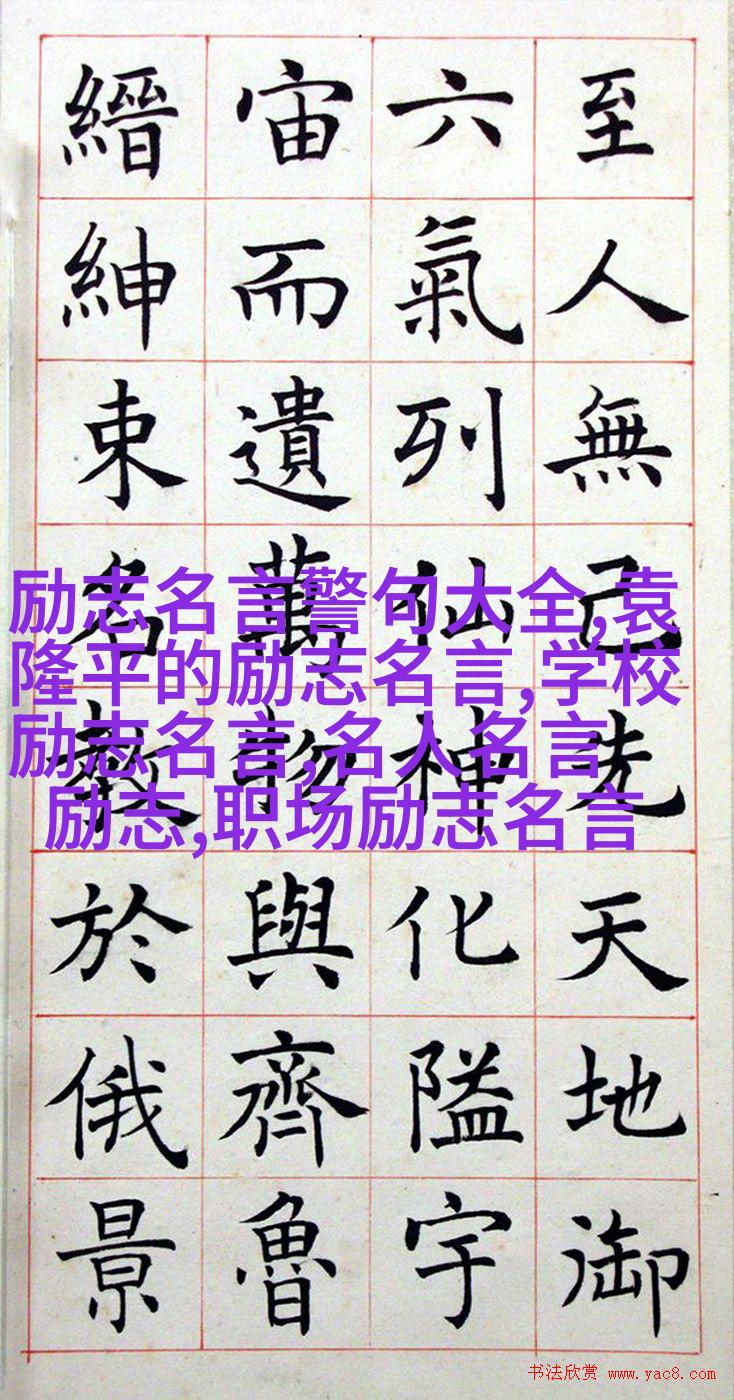 至人無己先天地御
六氣列仙神化隘宇
宙而遺萬物與齊魯
縉紳束名教於俄景
励志名言警句大全,袁
隆平的励志名言,学校
励志名言,名人名言
励志,职场励志名言
书法欣赏 www.yac8.com